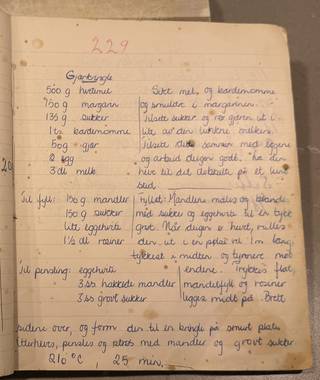 229
Gjærkringle
500 g hvetemel
150 g margarin
135 g sukker
1 ts kardemomme
50 g gjær
2 egg
3 dl melk
Sikt mel og kardemomme
og smuldr i margarinen.
Tilsett sukker og rør gjæren ut i
litt av den lunkne melken.
Tilsett dette sammen med eggene
og arbeid deigen godt. La den
heve til det dobbelte på et lunt
sted.
Til fyll: 150 g mandler
150 g sukker
litt eggehvite
1½ dl rosiner
Fyllet: Mandlene males og blandes
med sukker og eggehvite til en tykk
grøt. Når deigen er hevet, rulles
den ut i en pølse på 1 m lang,
tykkest i midten og tynnere mot
endene. Trykkes flat,
mandelfyll og rosiner
legges midt på. Brett
Til pensling: eggehvite
3 ss hakkede mandler
3 ss grovt sukker
sidene over, og form den til en kringle på smurt plate
Etterheves, pensles og strøs med mandler og grovt sukker.
210 °C, 25 min.